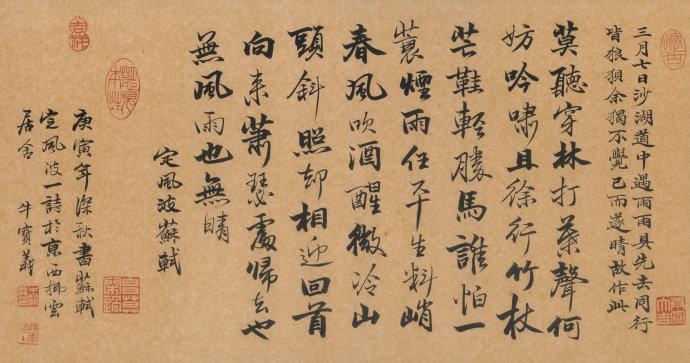 三月七日沙湖道中遇雨雨具先去同行
皆狼狽余獨不覺已而遂晴故作此
莫聽穿林打葉聲何
妨吟嘯且徐行竹杖
芒鞋輕勝馬誰怕一
蓑煙雨任平生料峭
春風吹酒醒微冷山
頭斜照却相迎回首
向来蕭瑟處歸去也
無風雨也無晴
定風波蘇軾
庚寅年深秋書蘇軾
定風波一詩於京西拂雲
居舍 牛寶義
吉祥